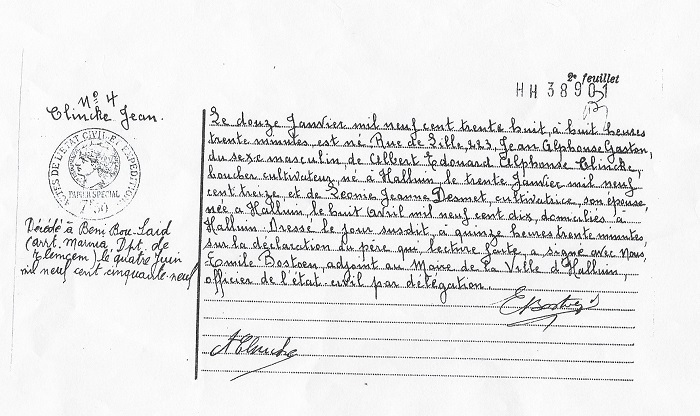 2e feuillet
HH 38901
No 4
Clincke Jean.
ACTES DE L'ETAT CIVIL ET EXPEDITIONS
PAPIER SPECIAL
Décédé à Beni Bou-Said
(arrt. Marnia, Dpt. de
Tlemcem) le quatre Juin
mil neuf cent cinquante-neuf
Le douze Janvier mil neuf cent trente huit, à huit heures
trente minutes est né Rue de Lille, 223, Jean Alphonse Gaston,
du sexe masculin, de Albert Edouard Alphonse Clincke,
boucher cultivateur, né à Halluin, le trente Janvier mil neuf
cent treize, et de Leonie Jeanne Desmet cultivatrice, son épouse,
née à Halluin, le huit Avril mil neuf cent dix, domiciliés à
Halluin. Dressé le jour susdit, à quinze heures trente minutes,
sur la déclaration du père qui, lecture faite, a signé avec Nous,
Emile Bostoen, adjoint au Maire de la Ville d'Halluin,
officier de l'état-civil par délégation.
EBostoen
AClincke